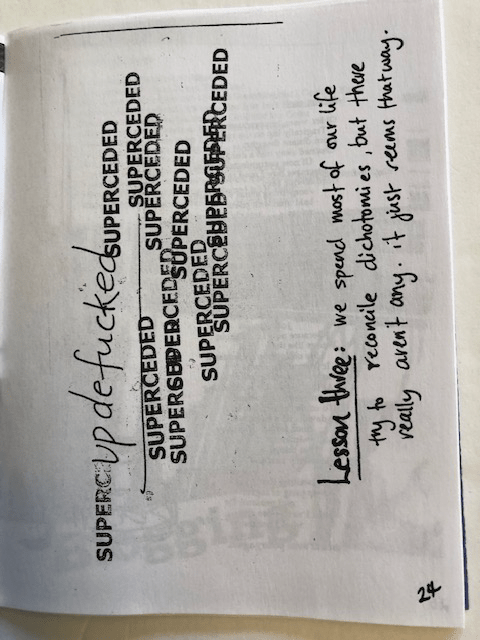 SUPERC up defucked SUPERCEDED
SUPERCEDED
SUPERCEDED SUPERCEDED
SUPERCEDED SUPERCEDED
SUPERCEDED SUPERCEDED
SUPERCEDED SUPERCEDED
Lesson three: we spend most of our life
try to reconcile dichotomies, but there
really aren't any. it just seems that way.
24